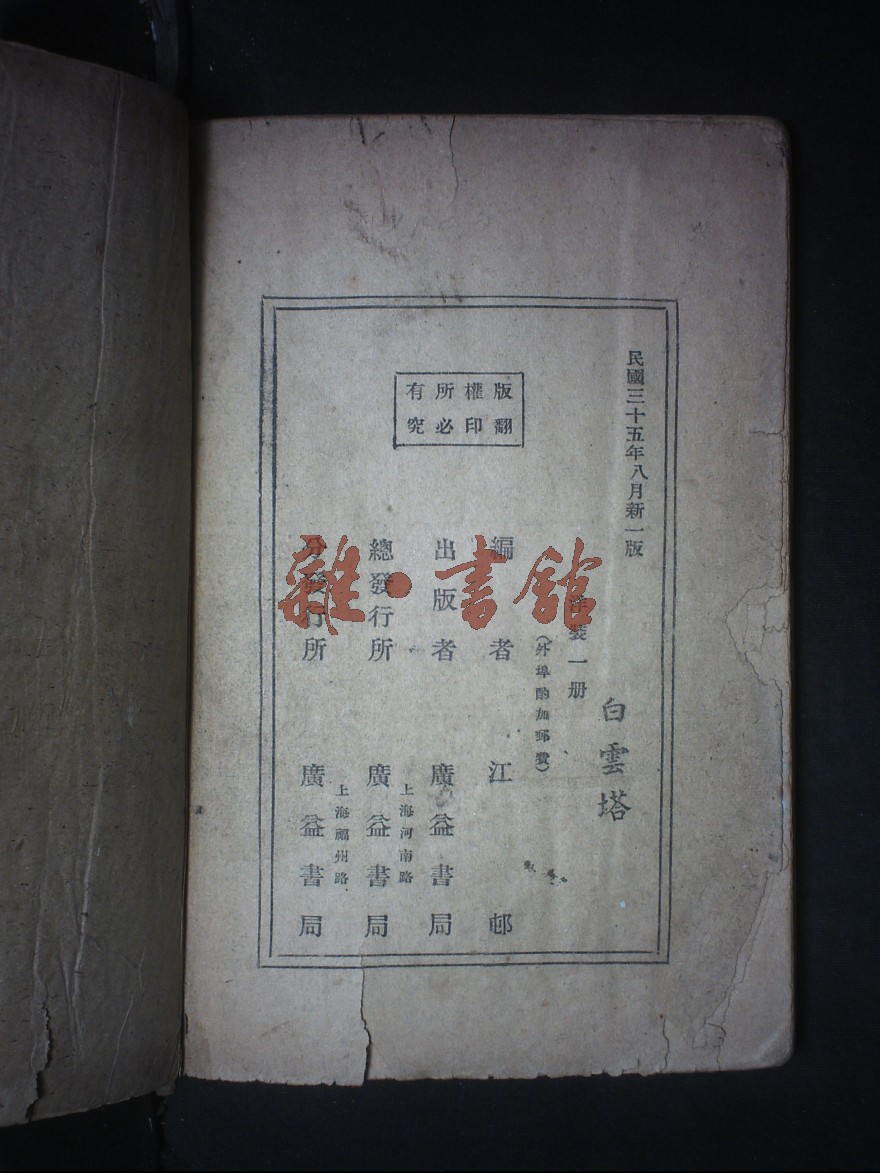 民國三十五年八月新一版
白雲塔
洋裝一册
(外埠酌加郵費)
版權所有
翻印必究
編者 江邨
出版者 廣益書局
總發行所 上海河南路 廣益書局
分發行所 上海福州路 廣益書局
雜·書館